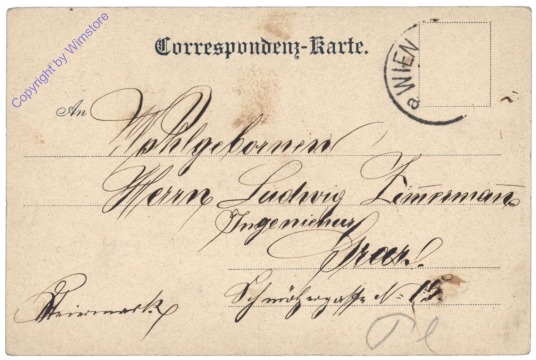 Copyright by Wimstore
Correspondenz-Karte.
a. WIEN
An
Wohlgebornen
Herrn Ludwig Zimmermann
Ingenieur
Graz!
N= 15.
Steiermark